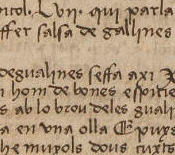 Lvij. qui parla
salsa de gallines
degualines seffa axi
hom de bones especie
ab lo brou deles guali
a en vna olla E puys
he morols dous cuyts